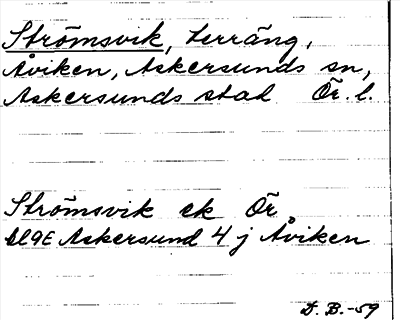 Strömsvik, terräng,
Åviken, Askersunds sn,
Askersunds stad Ör. l.
Strömsvik ek Ör
bl 9E Askersund 4 j Åviken
D. B. -59